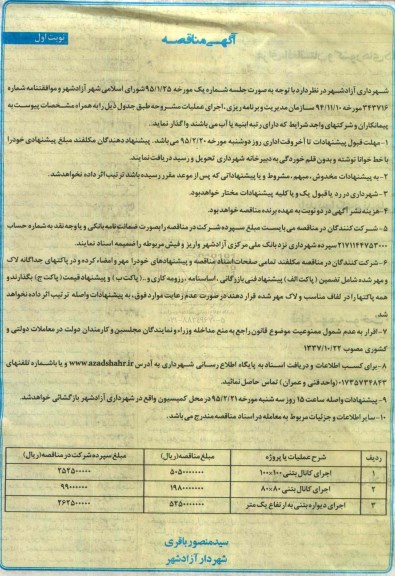 آگهی مناقصه
نوبت اول
شهرداری آزادشهر در نظر دارد با توجه به صورت جلسه شماره یک مورخه ۹۵/۱/۲۵ شورای اسلامی شهر آزادشهر و موافقتنامه شماره
۳۴۳۷۱۶ مورخه ۹۴/۱۱/۱۰ سازمان مدیریت و برنامه ریزی، اجرای عملیات مشروحه طبق جدول ذیل را به همراه مشخصات پیوست به
پیمانکاران و شرکتهای واجد شرایط که دارای رتبه ابنیه یا آب می باشند واگذار نماید.
۱- مهلت قبول پیشنهادات تا آخر وقت اداری روز دوشنبه مورخه ۹۵/۲/۲۰ می باشد. پیشنهاد دهندگان مکلفند مبلغ پیشنهادی خود را
با خط خوانا نوشته و بدون قلم خوردگی به دبیرخانه شهرداری تحویل و رسید دریافت نمایند.
۲- به پیشنهادات مخدوش، مبهم، مشروط و یا پیشنهاداتی که پس از موعد مقرر رسیده باشد ترتیب اثر داده نخواهد شد.
۳- شهرداری در رد یا قبول یک و یا کلیه پیشنهادات مختار خواهد بود.
۴- هزینه نشر آگهی در دو نوبت به عهده برنده مناقصه خواهد بود.
۵- شرکت کنندگان در مناقصه می بایست مبلغ سپرده شرکت در مناقصه را بصورت ضمانت نامه بانکی و یا وجه نقد به شماره حساب
۲۱۷۱۱۴۴۷۵۳۰۰۰ سپرده شهرداری نزد بانک ملی مرکزی آزادشهر واریز و فیش مربوطه را ضمیمه اسناد نمایند.
۶- شرکت کنندگان در مناقصه مکلفند تمامی صفحات اسناد مناقصه و پیشنهادهای خود را مهر و امضاء کرده و در پاکتهای جداگانه لاک
و مهر شده شامل تضمین (پاکت الف) پیشنهاد فنی بازرگانی، اساسنامه، رزومه کاری و.. (پاکت ب) و پیشنهاد قیمت (پاکت ج) بگذارند و
همه پاکتها را در لفاف مناسب و لاک مهر شده قرار دهند در صورت عدم رعایت موارد فوق، به پیشنهادات واصله ترتیب اثر داده نخواهد
شد.
۷- اقرار به عدم شمول ممنوعیت موضوع قانون راجع به منع مداخله وزراء و نمایندگان مجلسین و کارمندان دولت در معاملات دولتی و
کشوری مصوب ۱۳۳۷/۱۰/۲۲
۸- برای کسب اطلاعات و دریافت اسناد به پایگاه اطلاع رسانی شهرداری به آدرس www.azadshahr.ir و یا با شماره تلفنهای
۰۱۷۳۵۷۳۴۸۴۳ (واحد فنی و عمران) تماس حاصل نمائید.
۹- پیشنهادات واصله ساعت ۱۵ روز سه شنبه مورخه ۹۵/۲/۲۱ در محل کمیسیون واقع در شهرداری آزادشهر بازگشائی خواهد شد.
۱۰- سایر اطلاعات و جزئیات مربوط به معامله در اسناد مناقصه مندرج می باشد.
ردیف شرح عملیات یا پروژه مبلغ مناقصه (ریال) مبلغ سپرده شرکت در مناقصه (ریال)
۱ اجرای کانال بتنی ۱۰۰*۱۰۰ ۵۰۵۰۰۰۰۰۰۰ ۲۵۲۵۰۰۰۰۰
۲ اجرای کانال بتنی ۸۰*۸۰ ۱۹۸۰۰۰۰۰۰۰ ۹۹۰۰۰۰۰۰
۳ اجرای دیواره بتنی به ارتفاع یک متر ۵۲۵۰۰۰۰۰۰۰ ۲۶۲۵۰۰۰۰۰
سید منصور باقری
شهردار آزادشهر